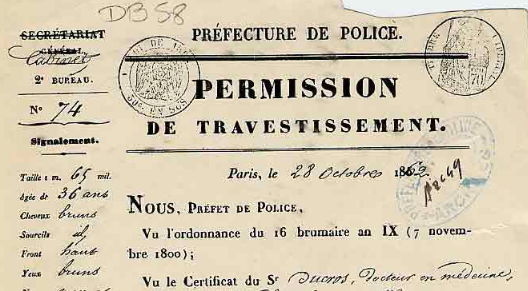 DB 58
SECRÉTARIAT
GÉNÉRAL.
Cabinet
2e BUREAU.
N° 74
Signalement.
Taille 1 m. 65 mil.
âgée de 36 ans
Cheveux bruns
Sourcils id
Front haut
Yeux bruns
PRÉFECTURE DE POLICE.
PERMISSION
DE TRAVESTISSEMENT.
Paris, le 28 Octobre 186
NOUS, PRÉFET DE POLICE,
Vu l'ordonnance du 16 brumaire an IX (7 novem-
bre 1800);
Vu le Certificat du Sr Ducros, Docteur en médecine,